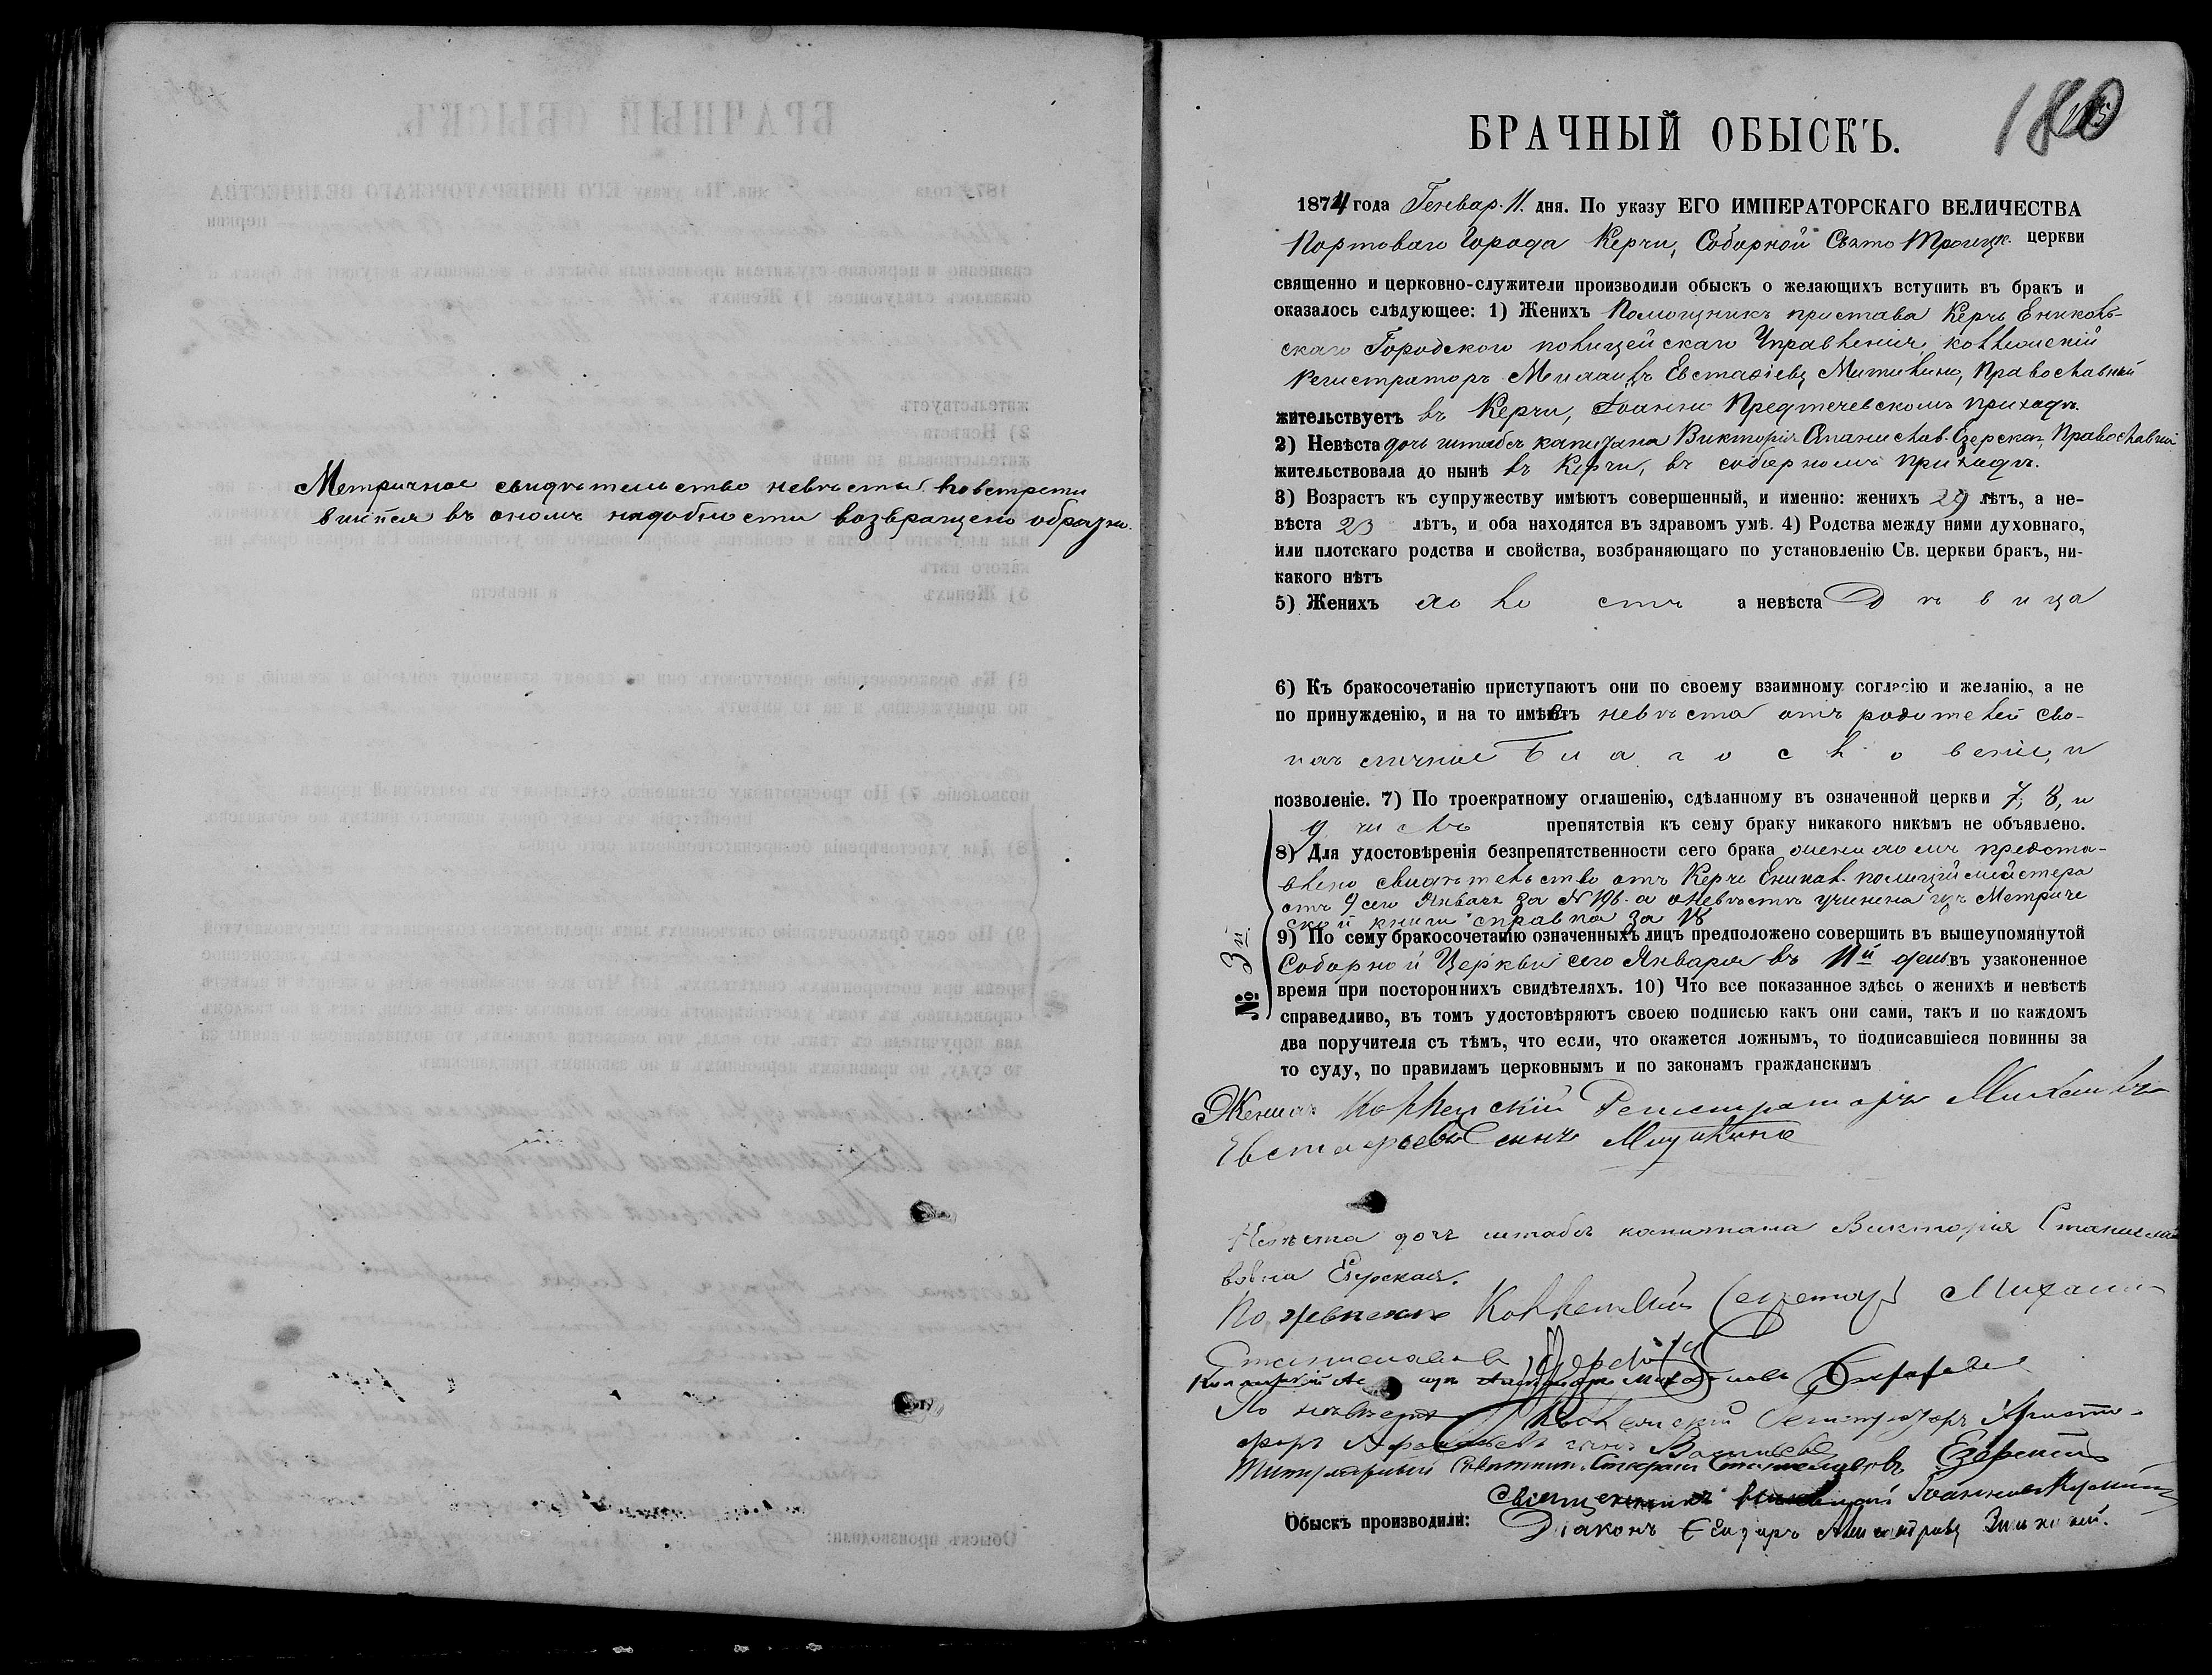 Метричное свидѣтельство невѣсты по встрети
вшейся въ ономъ надобности возвращено обратно.
180
БРАЧНЫЙ ОБЫСКЪ.
1874 года Генвар. 11. дня. По указу ЕГО ИМПЕРАТОРСКАГО ВЕЛИЧЕСТВА
Портоваго Города Керчи, Соборной Свято Троицк. церкви
священно и церковно-служители производили обыскъ о желающихъ вступить въ бракъ и
оказалось слѣдующее: 1) Женихъ Помощникъ пристава Керчь Ениколь-
скаго Городского полицейскаго Управленія коллежскій
Регистраторъ Михаилъ Евстафіевъ Митилино, Православный
жительствуетъ въ Керчи, Іоанно Предтечевскомъ приходѣ.
2) Невѣста дочь штабсъ капитана Викторія Станислав. Езерская, Православная
жительствовала до нынѣ въ Керчи, въ соборномъ приходѣ.
3) Возрастъ къ супружеству имѣютъ совершенный, и именно: женихъ 29 лѣтъ, а не-
вѣста 23 лѣтъ, и оба находятся въ здравомъ умѣ. 4) Родства между ними духовнаго,
или плотскаго родства и свойства, возбраняющаго по установленію Св. церкви бракъ, ни-
какого нѣтъ
5) Женихъ холостъ а невѣста Дѣвица
6) Къ бракосочетанію приступаютъ они по своему взаимному согласію и желанію, а не
по принужденію, и на то имѣетъ невѣста отъ родителей сво-
ихъ личное Благословеніе, и
позволеніе. 7) По троекратному оглашенію, сдѣланному въ означенной церкви 7, 8, и
9 числъ препятствія къ сему браку никакого никѣмъ не объявлено.
8) Для удостовѣренія безпрепятственности сего брака женихомъ предста-
влено свидѣтельство отъ Керчь Еникал. полиціймейстера
отъ 9 сего Января за № 196. а о невѣстѣ учинена изъ Метриче
ской книги справка за 18
№ 3й.
9) По сему бракосочетанію означенныхъ лицъ предположено совершить въ вышеупомянутой
Соборной Церкви сего Января въ 11й день въ узаконенное
время при постороннихъ свидѣтеляхъ. 10) Что все показанное здѣсь о женихѣ и невѣстѣ
справедливо, въ томъ удостовѣряютъ своею подписью какъ они сами, такъ и по каждомъ
два поручителя съ тѣмъ, что если, что окажется ложнымъ, то подписавшіеся повинны за
то суду, по правиламъ церковнымъ и по законамъ гражданскимъ
Женихъ Коллежскій Регистраторъ Михаилъ
Евстафьевъ сынъ Митилино
Невѣста дочь штабсъ капитана Викторія Станисла
вовна Езерская.
По женихѣ Коллежскій Секретарь Михаилъ
По невѣстѣ Коллежскій Регистраторъ Христо-
форъ сынъ Васильевъ
Титулярный Совѣтникъ Станиславовъ Езерскій
Священникъ Іоаннъ
Обыскъ производили: Діаконъ